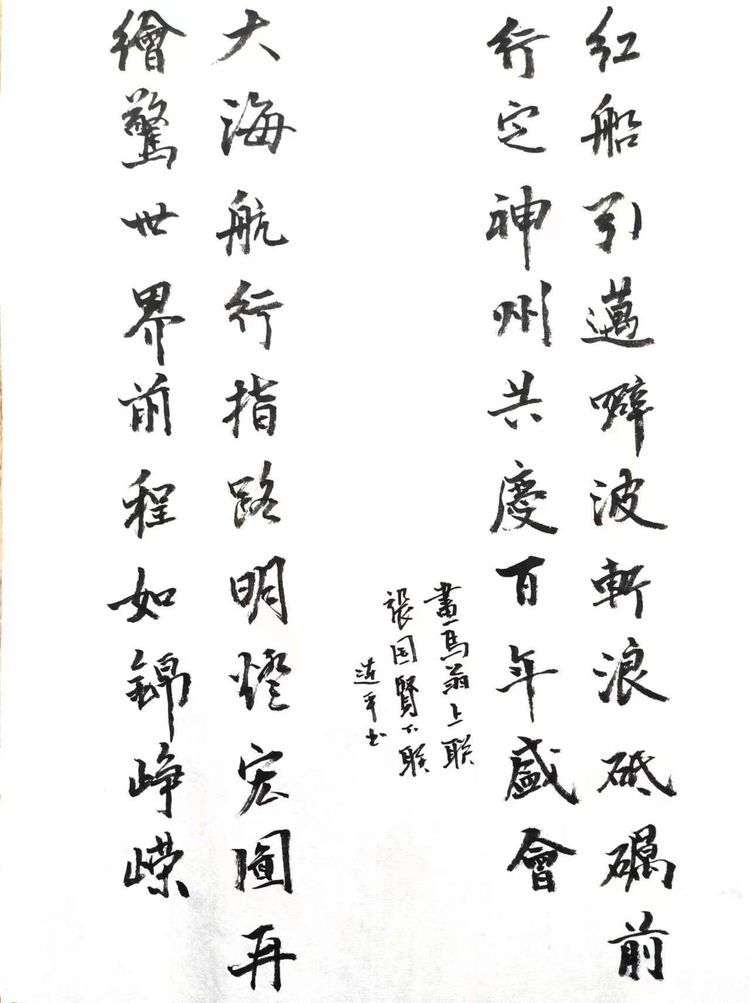 红船引邁噼波斬浪砥礪前
行定神州共慶百年盛會
畫馬翁上联
張国賢下联
連平书
大海航行指路明燈宏圖再
繪驚世界前程如錦崢嶸